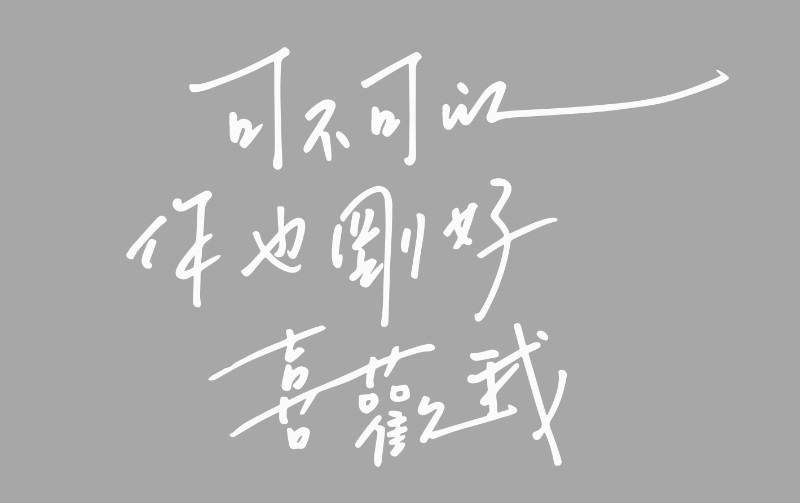 可不可以
你也剛好
喜歡我